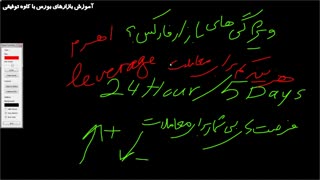 آموزش بازارهای بورس با کاوه توفیقی
ویژگی های بازار فارکس؟ اهرم
leverage هزینه کم برای معاملات
24 Hour / 5 Days
فرصت های بی شمار برای معاملات